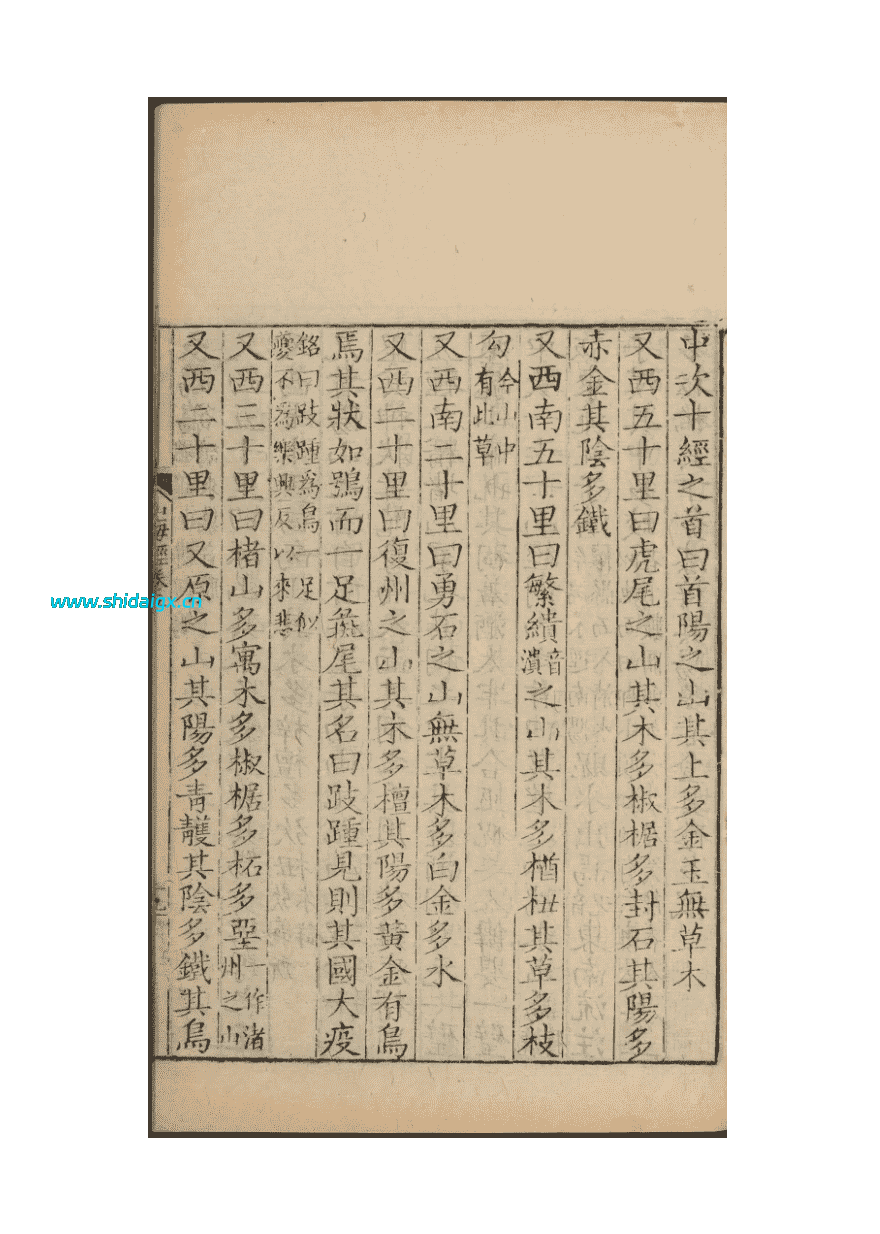 中次十經之首曰首陽之山其上多金玉無草木
又西五十里曰虎尾之山其木多椒椐多封石其陽多
赤金其陰多鐵
又西南五十里曰繁繢音潰之山其木多楢杻其草多枝
勾今山中有此草
又西南二十里曰勇石之山無草木多白金多水
又西二十里曰復州之山其木多檀其陽多黃金有鳥
焉其狀如鴞而一足彘尾其名曰跂踵見則其國大疫
銘曰跂踵為鳥一足似
夔不為樂興反以來悲
又西三十里曰楮山多寓木多椒椐多柘多堊一作渚州之山
又西二十里曰又原之山其陽多青雘其陰多鐵其鳥
山海經卷
www.shidaigx.cn